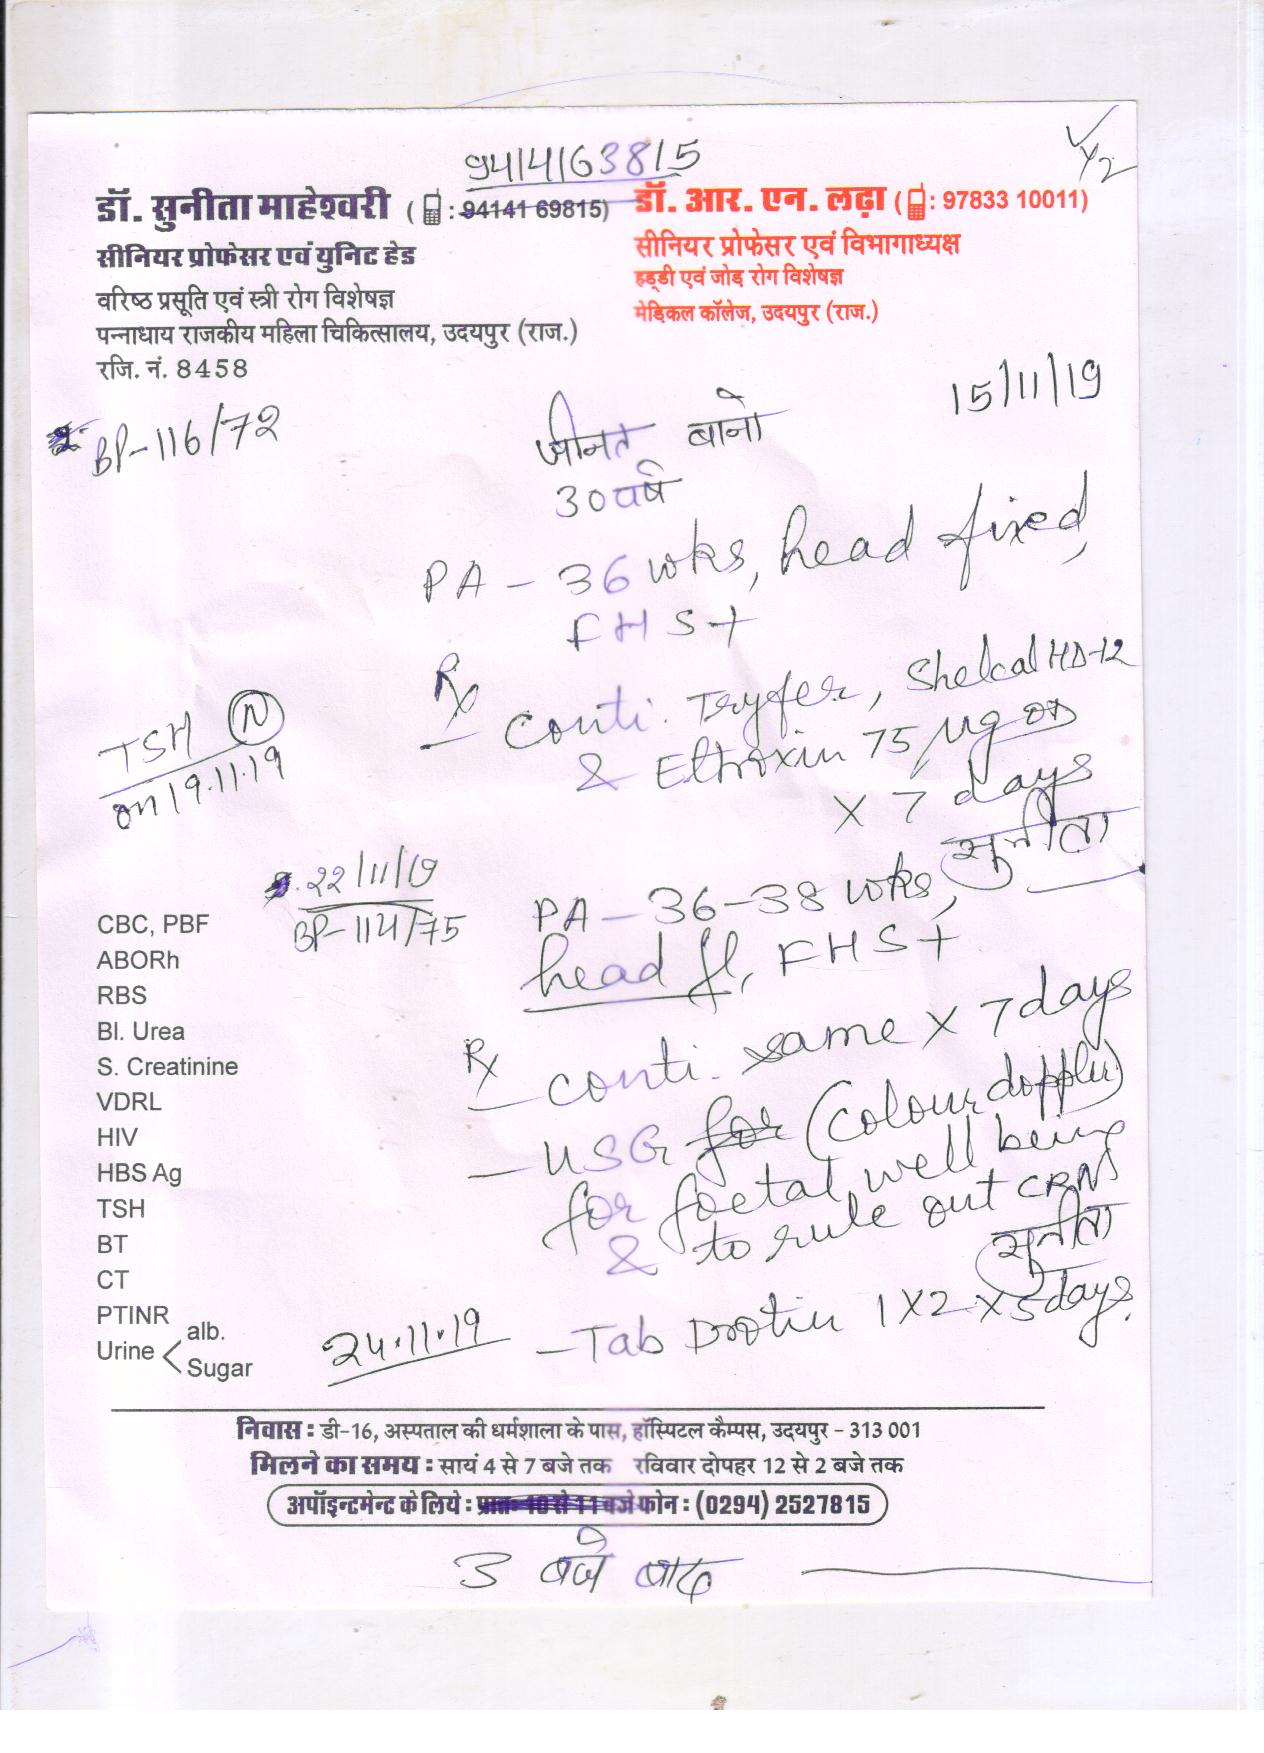 9414163815
√Y2
डॉ. सुनीता माहेश्वरी ( : 94141 69815)
डॉ. आर. एन. लढ़ा ( : 97833 10011)
सीनियर प्रोफेसर एवं युनिट हेड
सीनियर प्रोफेसर एवं विभागाध्यक्ष
वरिष्ठ प्रसूति एवं स्त्री रोग विशेषज्ञ
हड्डी एवं जोड़ रोग विशेषज्ञ
पन्नाधाय राजकीय महिला चिकित्सालय, उदयपुर (राज.)
मेडिकल कॉलेज, उदयपुर (राज.)
रजि. नं. 8458
15/11/19
BP-116/72
जीनत बानो
30 वर्ष
PA - 36 wks, head fixed,
FHS+
Rx
- conti. Tryfer, Shelcal HD-12
& Eltroxin 75 µg OD
x 7 days
सुनीता
TSH N
on 19.11.19
22/11/19
BP-114/75
PA - 36-38 wks,
head fl, FHS+
Rx
- conti. same x 7 days
- USG for (colour doppler)
for foetal well being
& to rule out CRN
सुनीता
24.11.19
- Tab Drotin 1X2 x 5 days.
CBC, PBF
ABORh
RBS
Bl. Urea
S. Creatinine
VDRL
HIV
HBS Ag
TSH
BT
CT
PTINR
Urine < alb.
Sugar
निवास : डी-16, अस्पताल की धर्मशाला के पास, हॉस्पिटल कैम्पस, उदयपुर - 313 001
मिलने का समय : सायं 4 से 7 बजे तक रविवार दोपहर 12 से 2 बजे तक
अपॉइन्टमेन्ट के लिये : प्रातः 10 से 11 बजे फोन : (0294) 2527815
3 बजे बाद